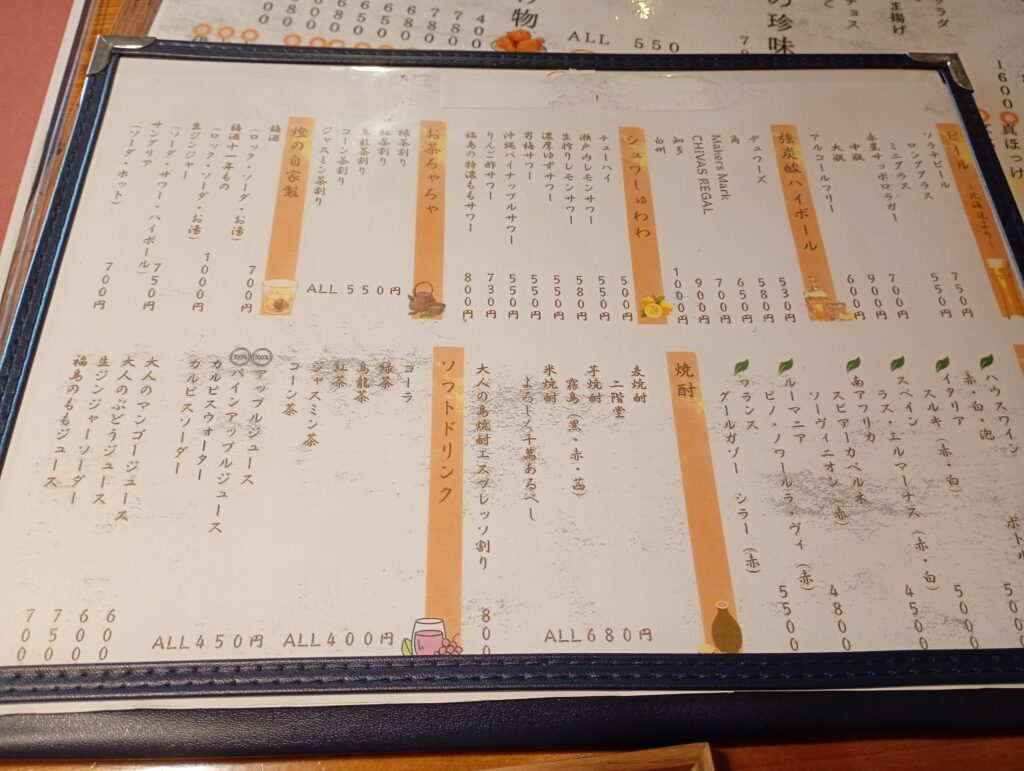 ビール ～北海道より～
ソラチビール
ロンググラス 750円
ミニグラス 550円
赤星サッポロラガー
中瓶 700円
大瓶 900円
アルコールフリー 600円
強炭酸ハイボール
デュワーズ 530円
角 580円
Maker's Mark 650円
CHIVAS REGAL 700円
知多 900円
白州 1000円
シュワしゅわわ
チューハイ 500円
瀬戸内レモンサワー 550円
生搾りレモンサワー 580円
濃厚ゆずサワー 550円
男梅サワー 550円
沖縄パイナップルサワー 550円
りんご酢サワー 730円
福島の特濃ももサワー 800円
お茶ちゃちゃ
緑茶割り
紅茶割り
烏龍茶割り
コーン茶割り
ジャスミン茶割り
ALL 550円
燈の自家製
梅酒
(ロック・ソーダ・お湯) 700円
梅酒十一年もの
(ロック・ソーダ・お湯) 1000円
生ジンジャー
(ソーダ・サワー・ハイボール) 750円
サングリア
(ソーダ・ホット) 700円
ボトル
ハウスワイン
赤・白・泡 5000
イタリア
スルキ (赤・白) 5000
スペイン
ラス・エルマーナス (赤・白) 4500
南アフリカ
スピアーカベルネ
ソーヴィニオン 赤 4800
ルーマニア
ピノ・ノワールラ・ヴィ (赤) 5500
フランス
グールガゾー シラー (赤)
焼酎
麦焼酎
二階堂
芋焼酎
霧島 (黒・赤・茜)
米焼酎
よろしく千萬あるべし
ALL680円
大人の島焼酎エスプレッソ割り 800
ソフトドリンク
コーラ
緑茶
烏龍茶
紅茶
ジャスミン茶
コーン茶
ALL400円
100% アップルジュース
100% パインアップルジュース
カルピスウォーター
カルピスソーダー
ALL450円
大人のマンゴージュース 600
大人のぶどうジュース 600
生ジンジャーソーダー 750
福島のももジュース 700
の珍味
ALL 550